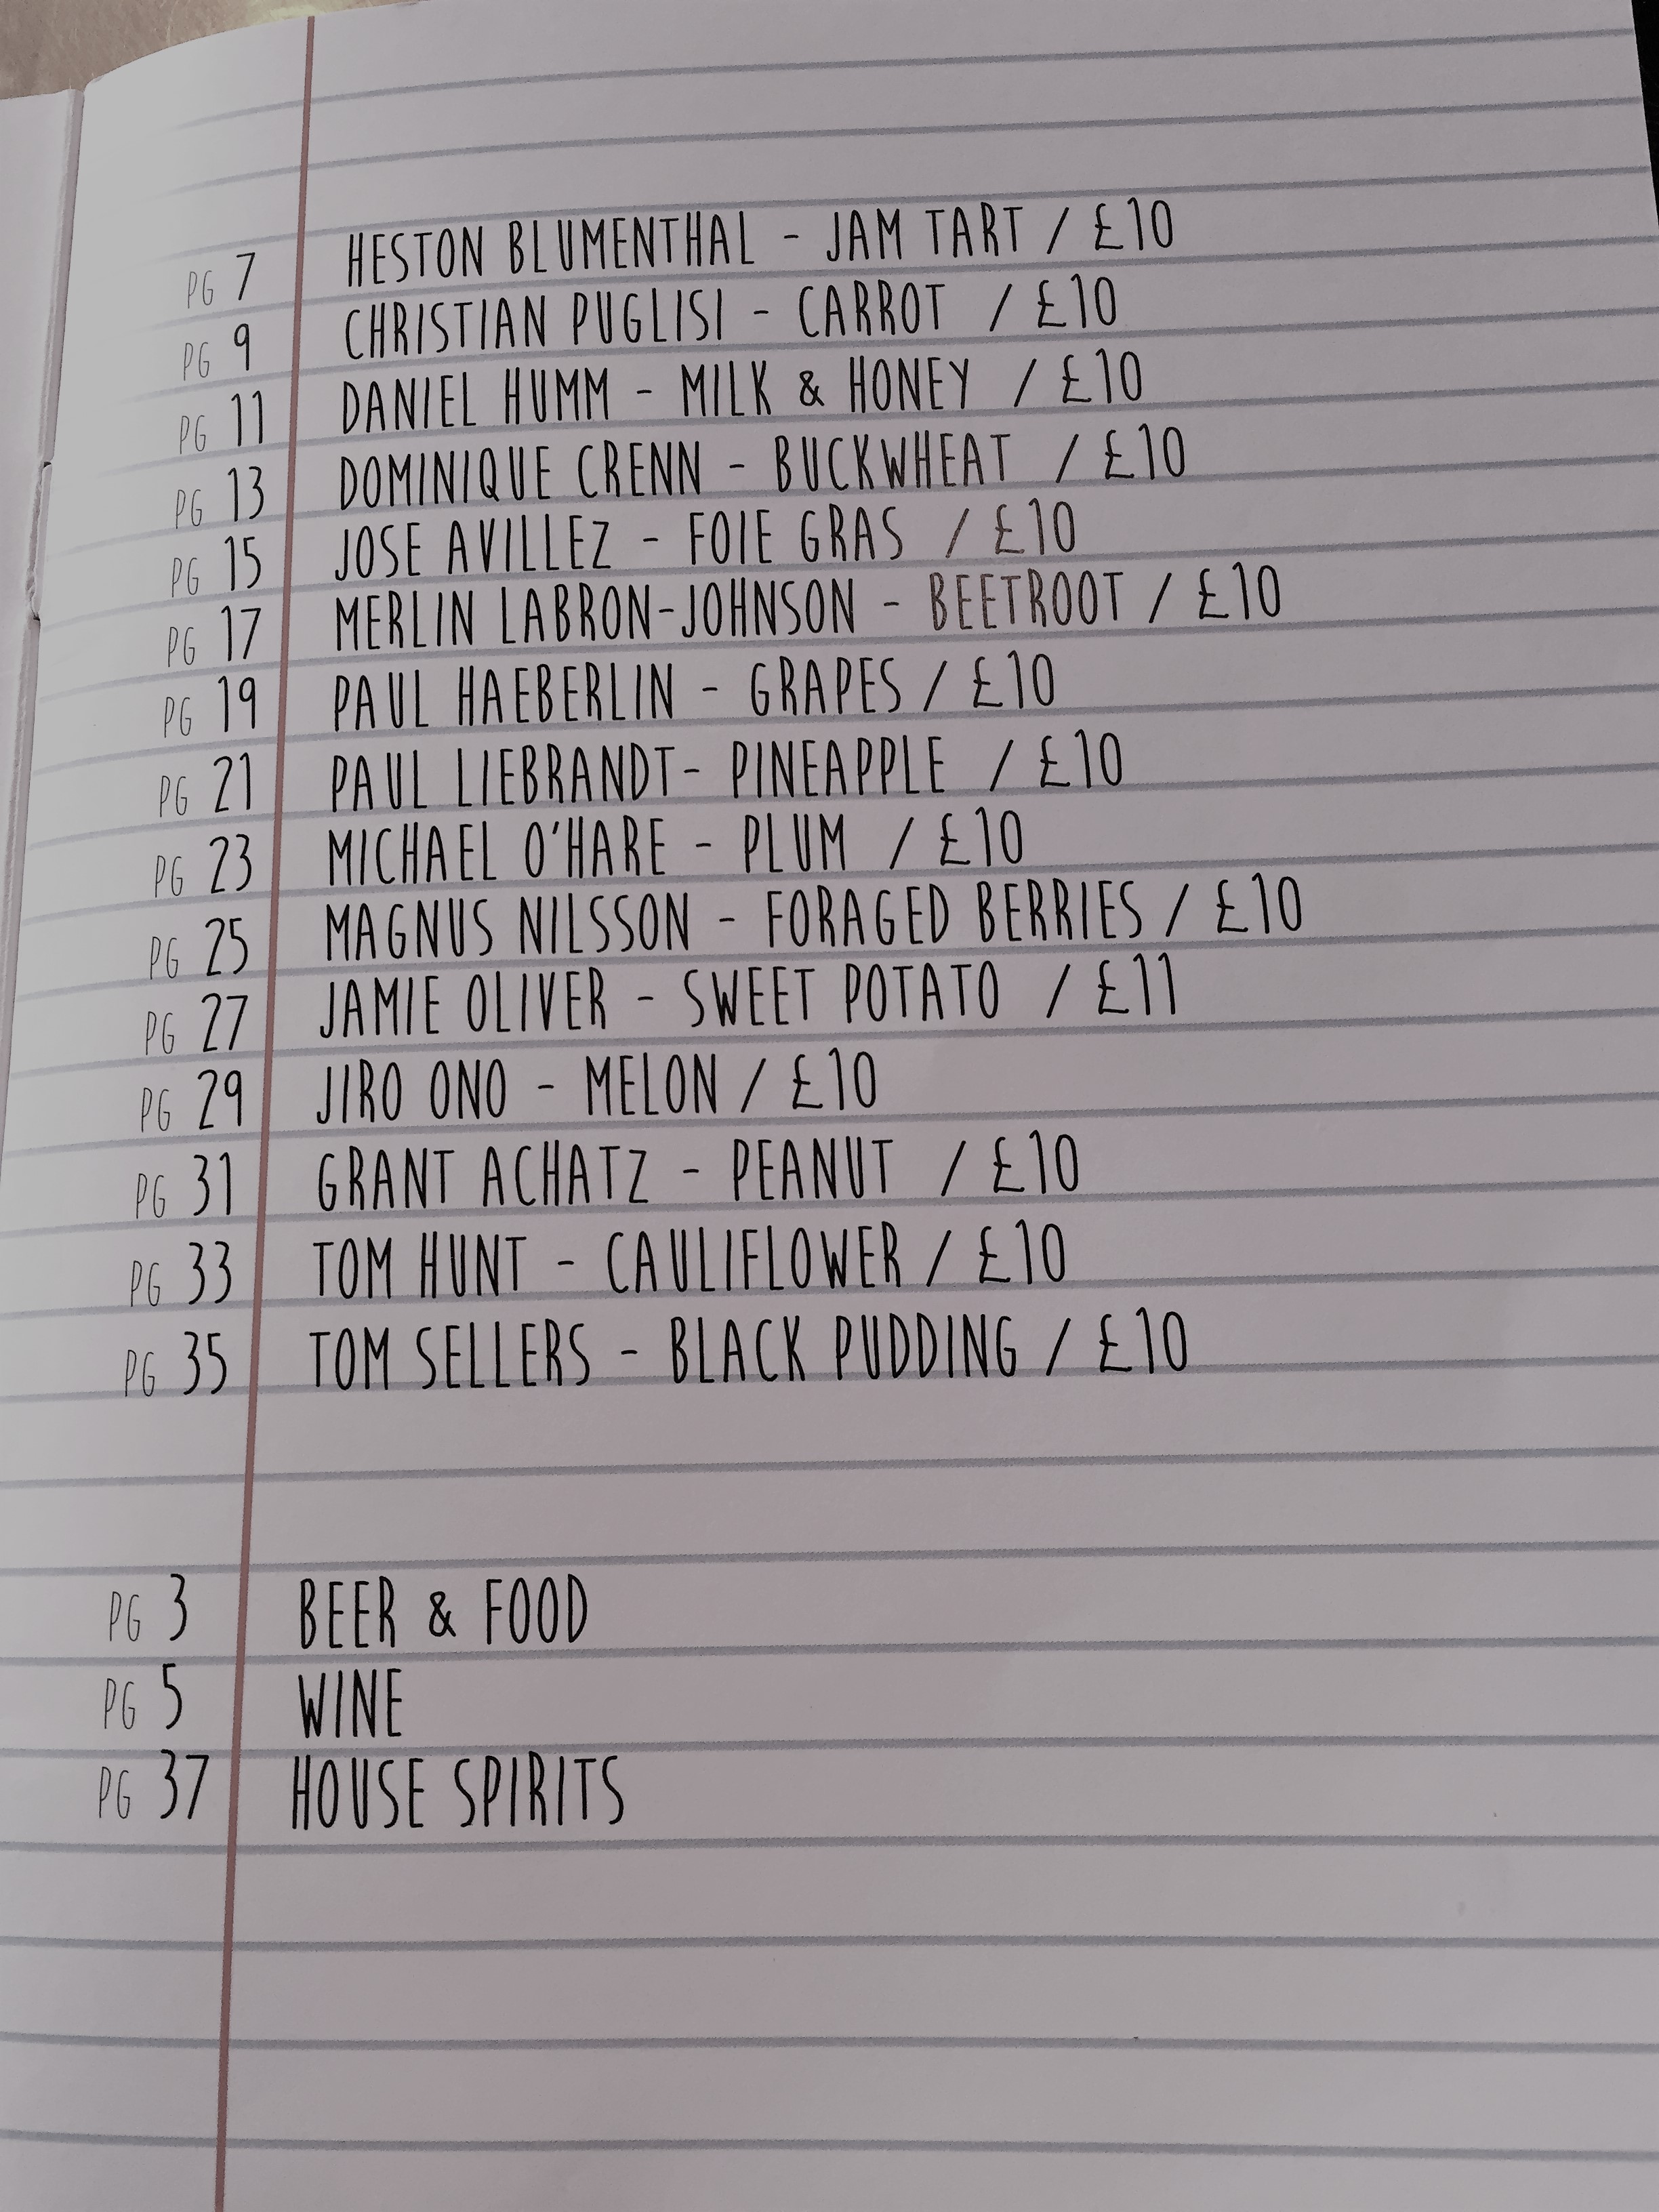 PG 7 HESTON BLUMENTHAL - JAM TART / £10
PG 9 CHRISTIAN PUGLISI - CARROT / £10
PG 11 DANIEL HUMM - MILK & HONEY / £10
PG 13 DOMINIQUE CRENN - BUCKWHEAT / £10
PG 15 JOSE AVILLEZ - FOIE GRAS / £10
PG 17 MERLIN LABRON-JOHNSON - BEETROOT / £10
PG 19 PAUL HAEBERLIN - GRAPES / £10
PG 21 PAUL LIEBRANDT- PINEAPPLE / £10
PG 23 MICHAEL O'HARE - PLUM / £10
PG 25 MAGNUS NILSSON - FORAGED BERRIES / £10
PG 27 JAMIE OLIVER - SWEET POTATO / £11
PG 29 JIRO ONO - MELON / £10
PG 31 GRANT ACHATZ - PEANUT / £10
PG 33 TOM HUNT - CAULIFLOWER / £10
PG 35 TOM SELLERS - BLACK PUDDING / £10
PG 3 BEER & FOOD
PG 5 WINE
PG 37 HOUSE SPIRITS